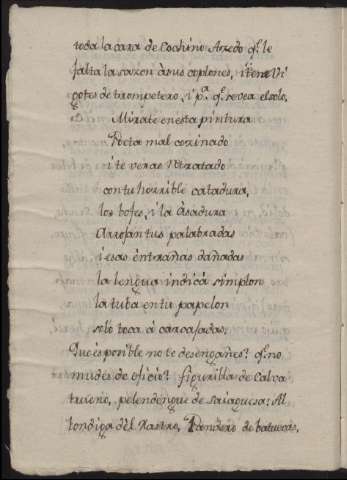 toda la cara de Cochino Azedo q.e le
falta la sazon à sus coplones, i tiene Vi
gotes de trompetero, i p.a q.e se vea el solo,
Mirate en esta pintura
Poeta mal cozinado
i te veras Retratado
con tu horrible catadura,
los bofes, i la Asadura
Arrofantus palabradas
i esas entrañas dañadas
la lengua indicá simplon
la tuba en tu papelon
solo toca à carcajadas.
Que es posible no te desengañes? q.e no
mudes de oficio? figurilla de Calva
trueno, pelendengue de Saiaguesa: Al
fondiga del Rastro, Pandero de batuecas,